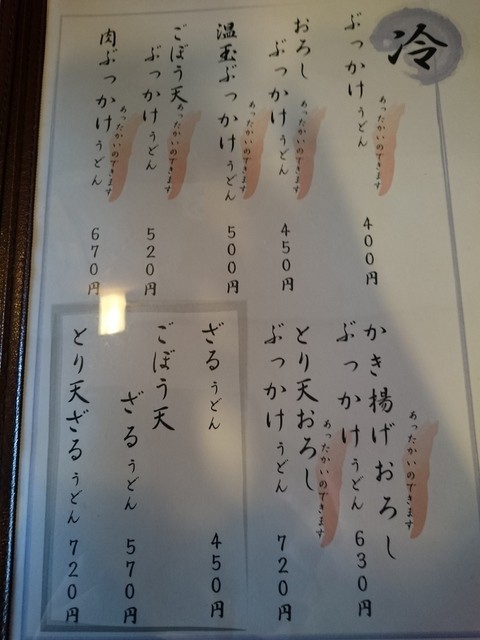 冷
ぶっかけうどん
あったかいのできます
400円
おろし
ぶっかけうどん
あったかいのできます
450円
温玉ぶっかけうどん
あったかいのできます
500円
ごぼう天
ぶっかけうどん
あったかいのできます
520円
肉ぶっかけうどん
あったかいのできます
670円
かき揚げおろし
ぶっかけうどん
あったかいのできます
630円
とり天おろし
ぶっかけうどん
あったかいのできます
720円
ざるうどん
450円
ごぼう天
ざるうどん
570円
とり天ざるうどん
720円